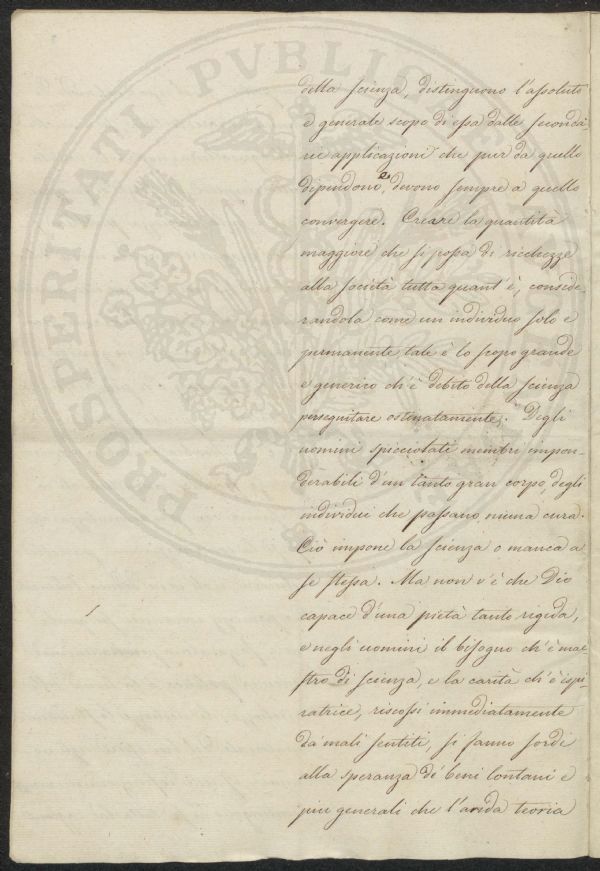 PROSPERITATI PVBLICAE
della scienza, distinguono l'assoluto
e generale scopo di essa dalle seconda-
rie applicazioni che pur da quello
dipendono, e devono sempre a quello
convergere. Creare la quantità
maggiore che si possa di ricchezze
alla società tutta quant'è, conside-
randola come un individuo solo e
permanente, tale è lo scopo grande
e generico ch'è debito della scienza
perseguitare ostinatamente. Degli
uomini spicciolati membri impon-
derabili d'un tanto gran corpo, degli
individui che passano niuna cura.
Ciò impone la scienza o manca a
se stessa. Ma non v'è che Dio
capace d'una pietà tanto rigida,
e negli uomini il bisogno ch'è mae-
stro di scienza, e la carità ch'è ispi-
ratrice, riscossi immediatamente
da' mali sentiti, si fanno sordi
alla speranza di beni lontani e
piu generali che l'arida teoria